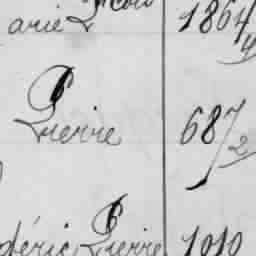 arie 1864/4
Pierre 687/2
déric Pierre 1010